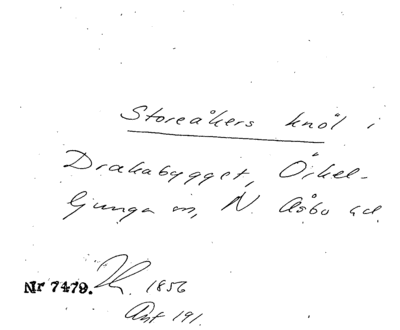 Storeåkers knöl i
Drakabygget, Örkel-
ljunga sn, N. Åsbo hd.
Nr 7479. 1856
Ant 191.